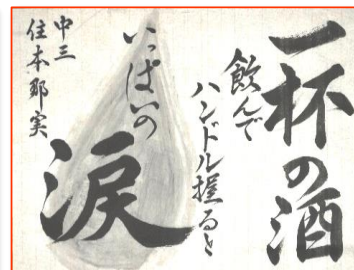 一杯の酒
飲んで
ハンドル握ると
いっぱいの
涙
中三
住本那実